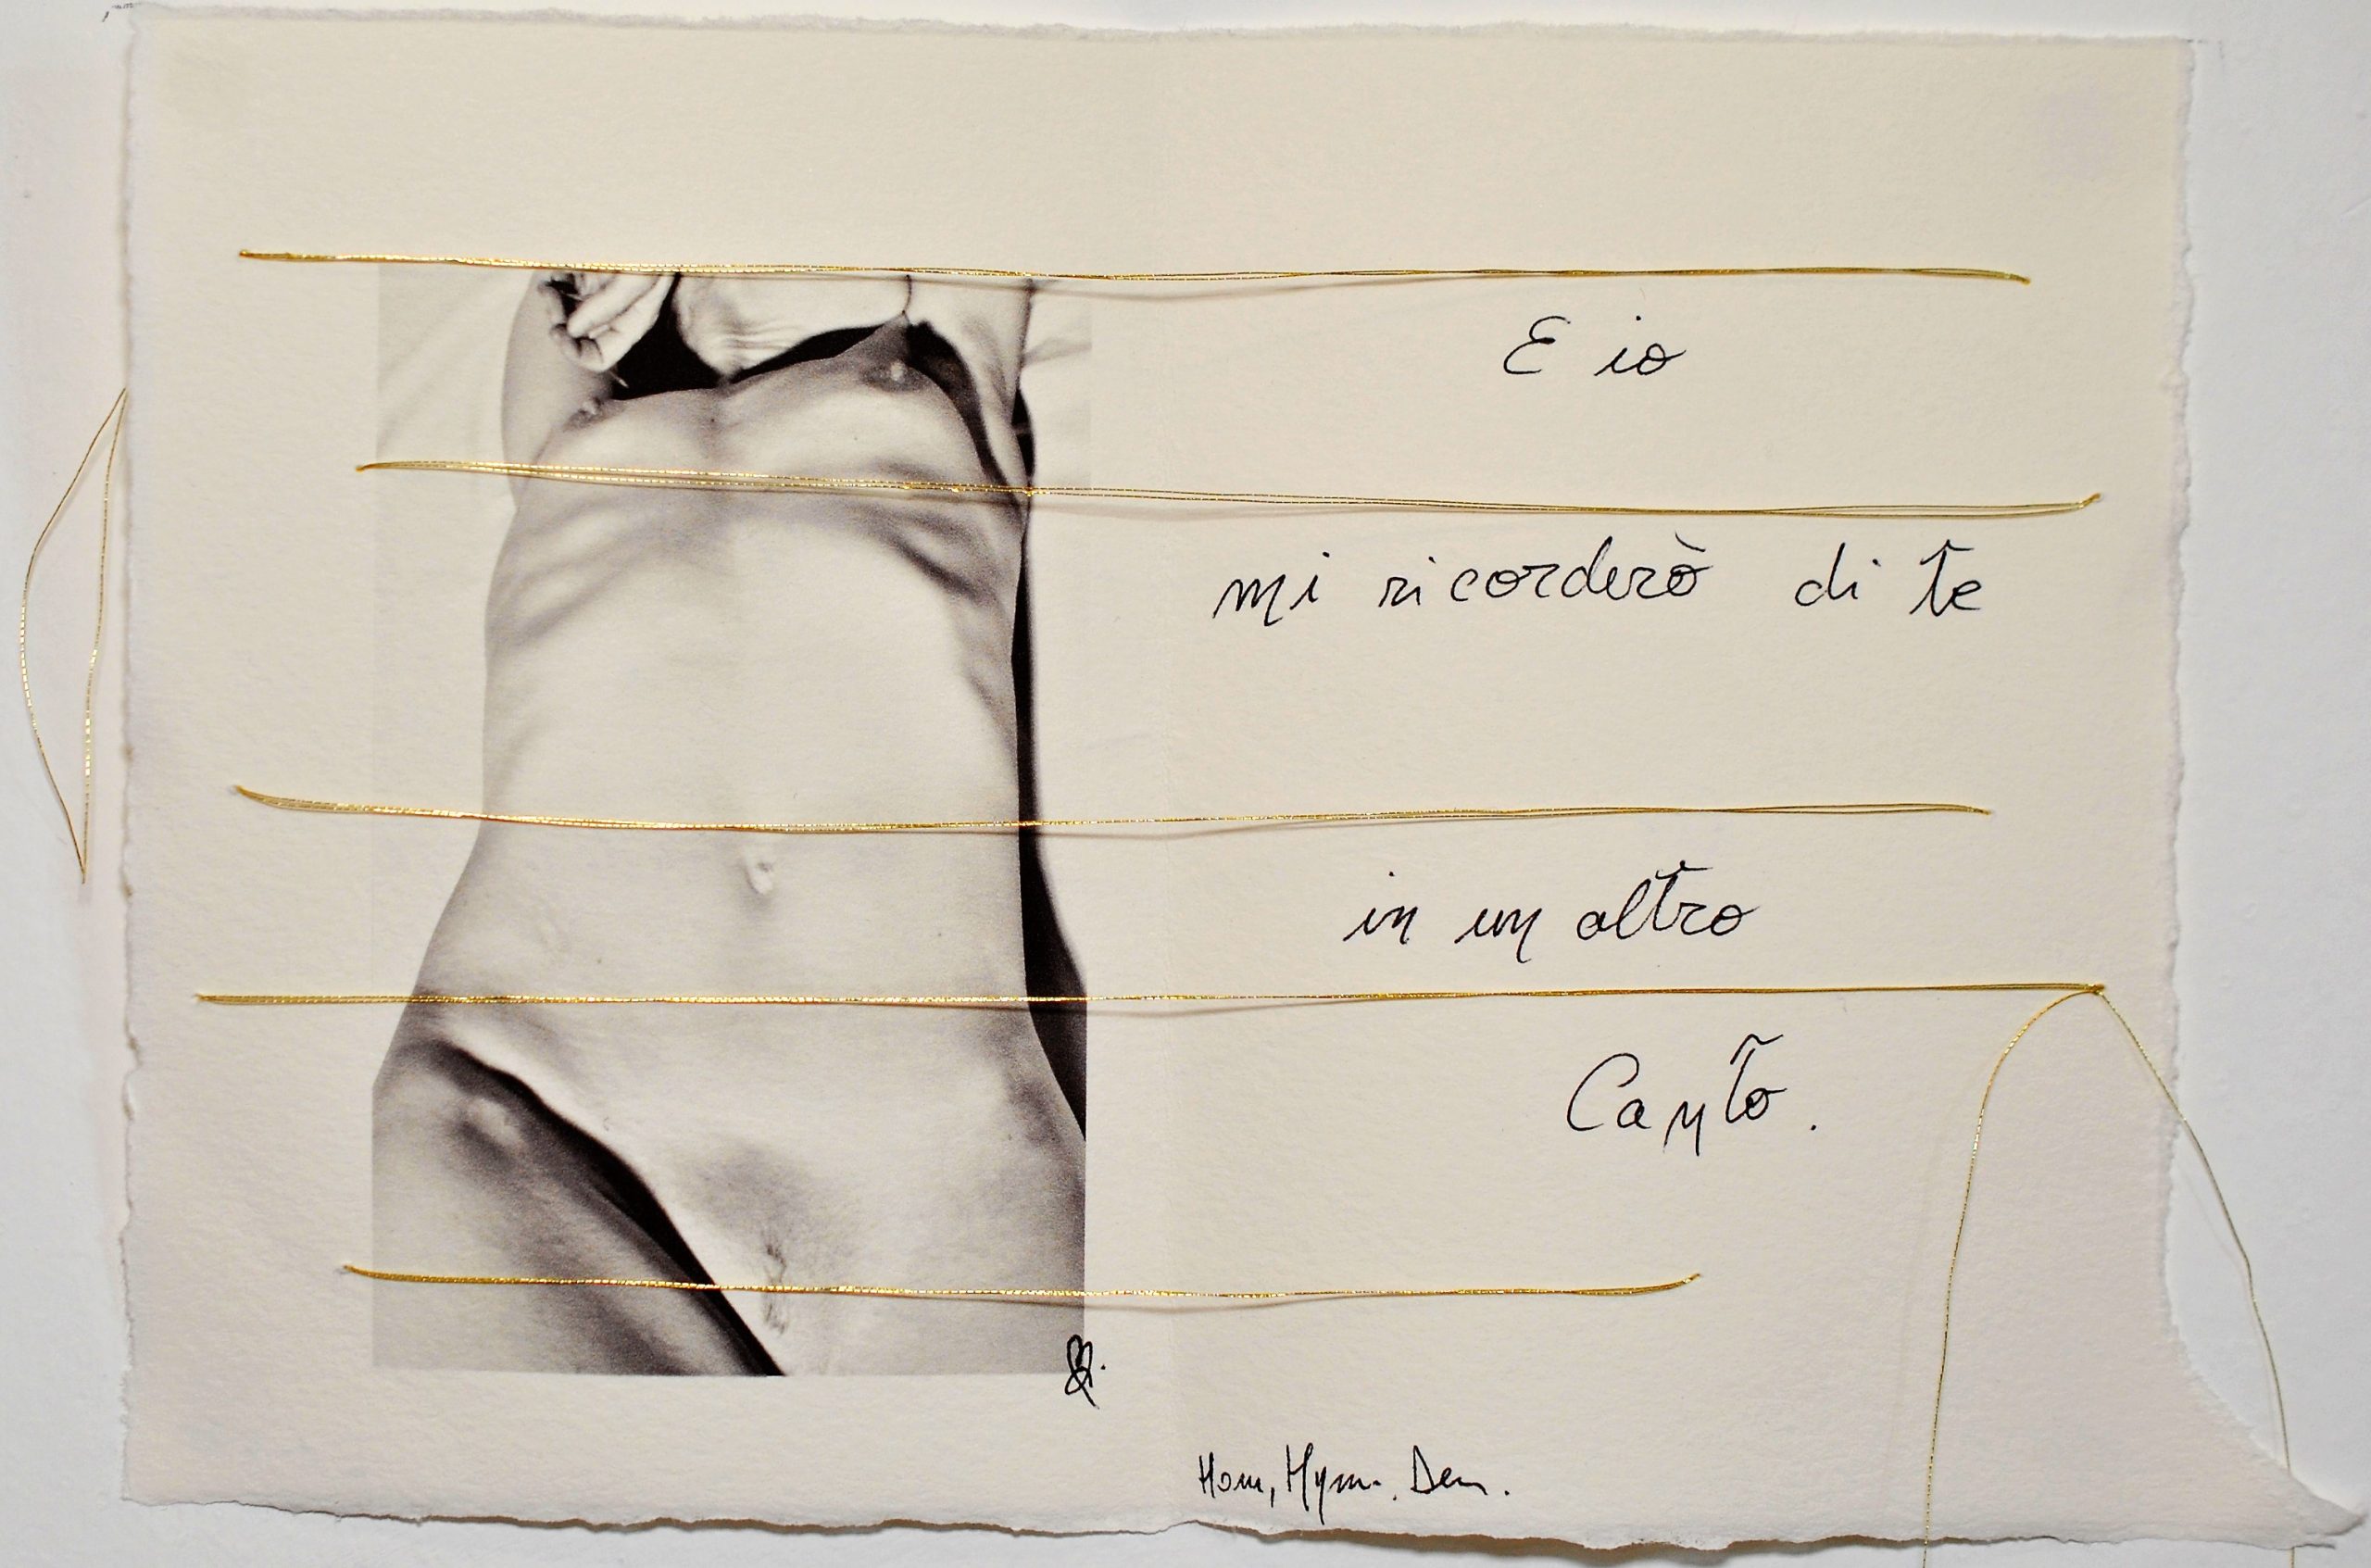 E io
mi ricorderò di te
in un altro
Canto.
Hom, Hym. Dem.